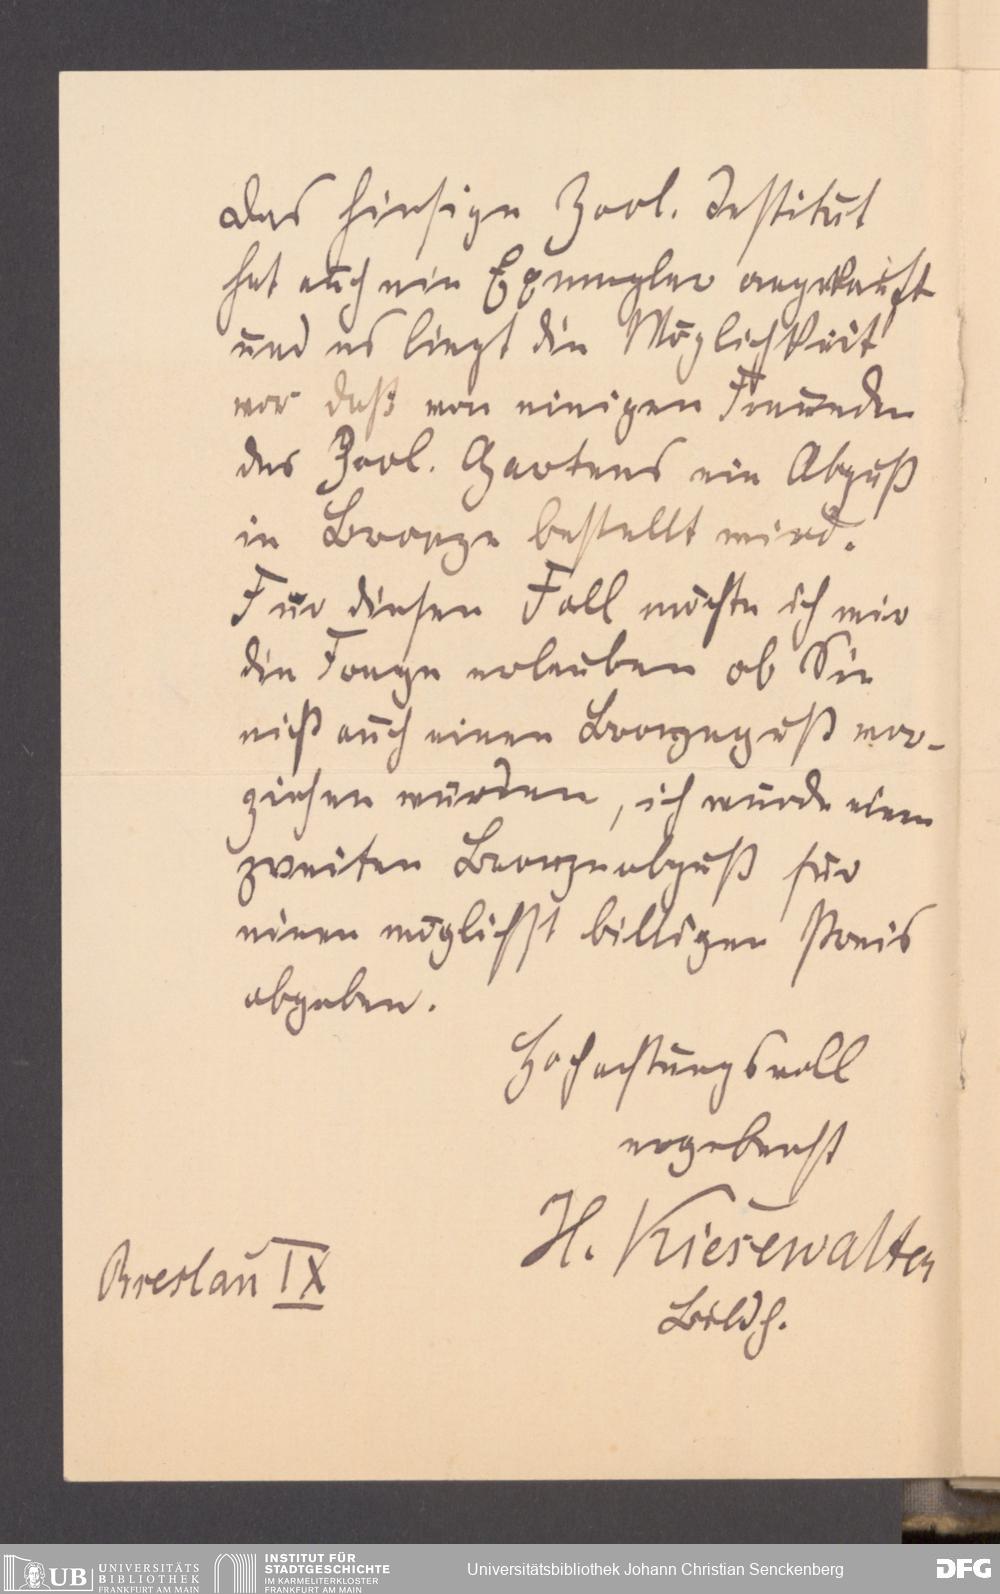 Das hiesige Zool. Institut
hat auch ein Exemplar angekauft
und es liegt die Möglichkeit
vor daß von einigen Freunden
des Zool. Gartens ein Abguß
in Bronze bestellt wird.
Für diesen Fall möchte ich mir
die Frage erlauben ob Sie
nicht auch einen Bronzeguß vor-
ziehen würden, ich würde einen
zweiten Bronzeabguß für
einen möglichst billigen Preis
abgeben.
Hochachtungsvoll
ergebenst
H. Kiesewalter
Bildh.
Breslau IX
UB UNIVERSITÄTS
BIBLIOTHEK
FRANKFURT AM MAIN
INSTITUT FÜR
STADTGESCHICHTE
IM KARMELITERKLOSTER
FRANKFURT AM MAIN
Universitätsbibliothek Johann Christian Senckenberg
DFG